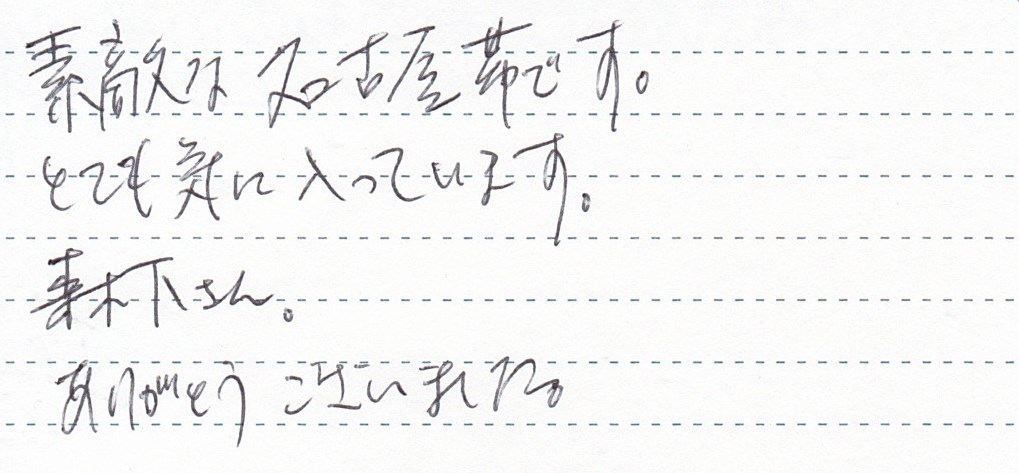 素敵な名古屋帯です。
とても気に入っています。
木下さん。
ありがとうございました。